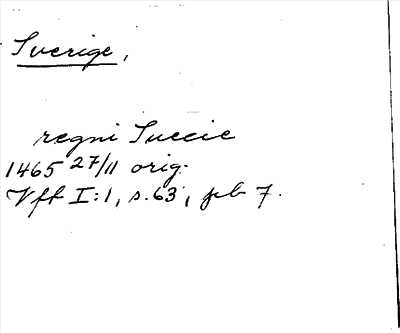 Sverige,
regni Suecie
1465 27/11 orig.
Vft I:1, s. 63, pb 7.